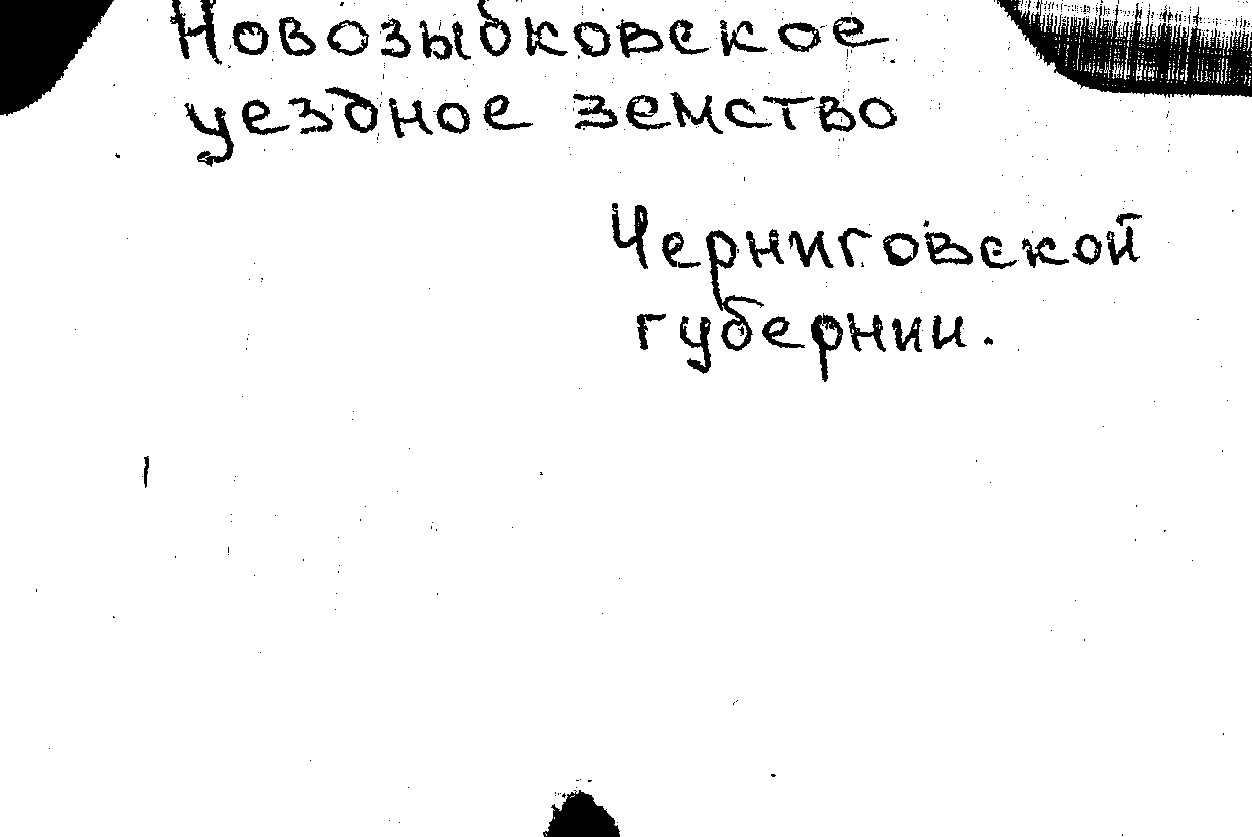 Новозыбковское
уездное земство
Черниговской
губернии.